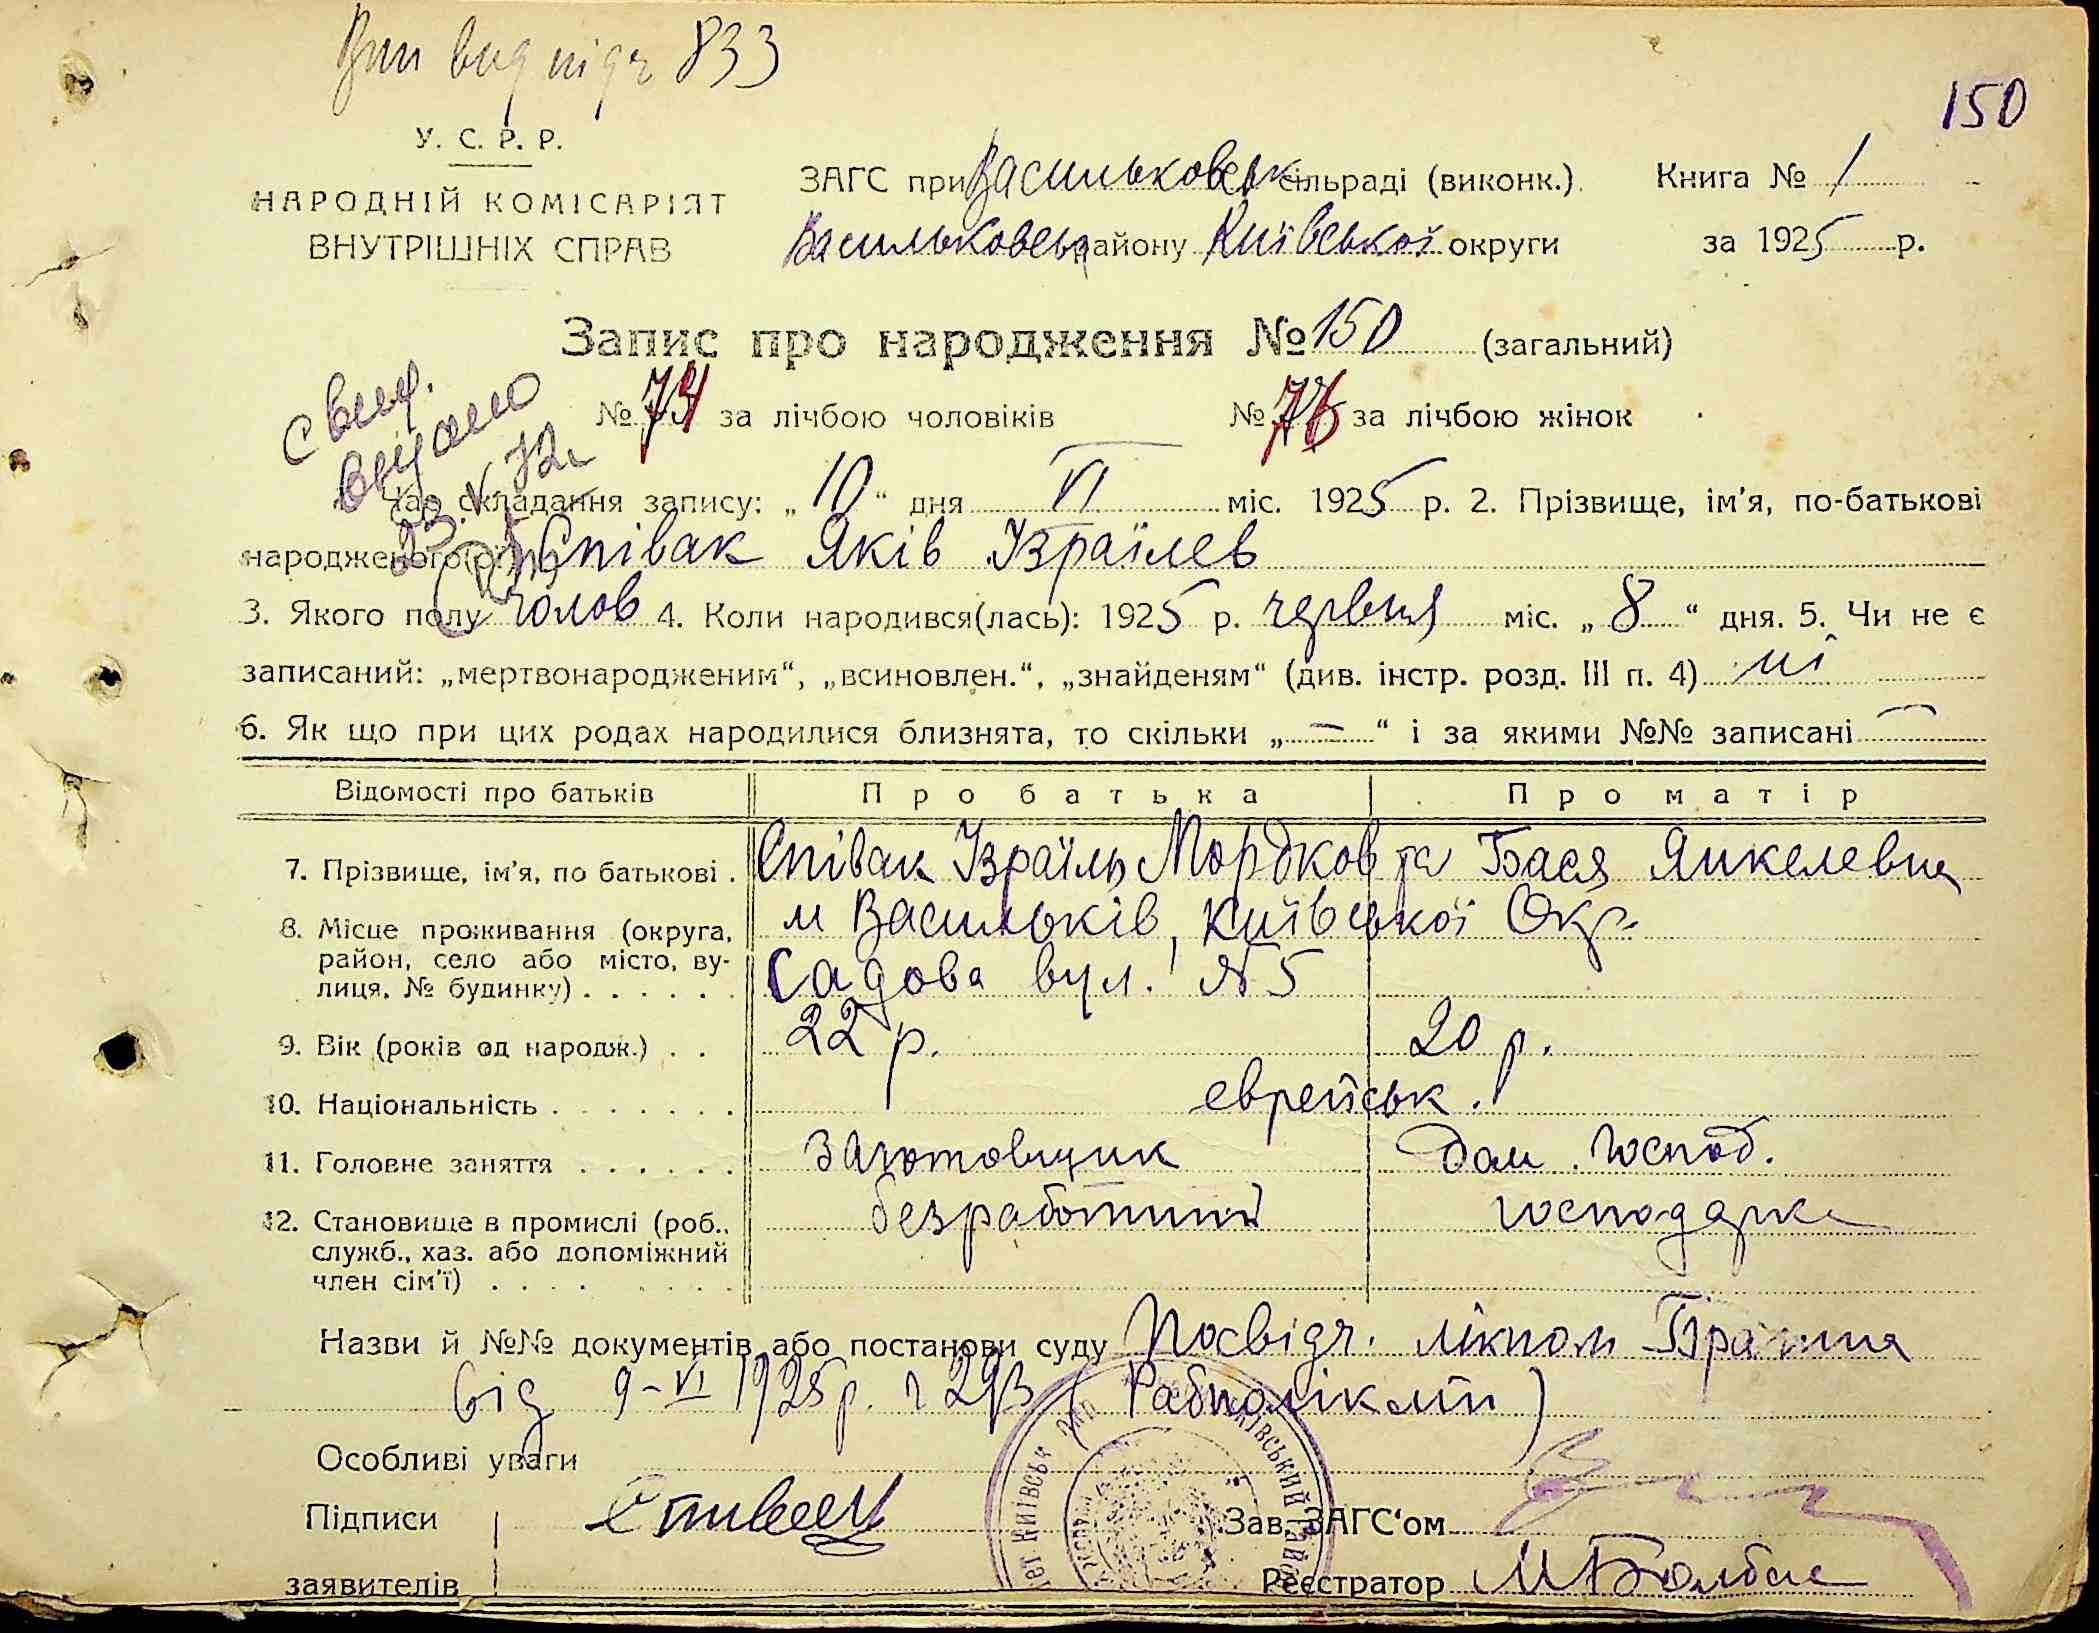 833
150
У. С. Р. Р.
НАРОДНІЙ КОМІСАРІЯТ
ВНУТРІШНІХ СПРАВ
ЗАГС при Васильковськ сільраді (виконк.). Книга № 1
Васильковськ району Київської округи за 1925 р.
Запис про народження № 150 (загальний)
№ 74 за лічбою чоловіків № 76 за лічбою жінок
свид.
видано
Час складання запису: „10“ дня VI міс. 1925 р. 2. Прізвище, ім'я, по-батькові
народженого(ої) Співак Яків Ізраїлев
3. Якого полу чолов 4. Коли народився(лась): 1925 р. червня міс. „8“ дня. 5. Чи не є
записаний: „мертвонародженим“, „всиновлен.“, „знайденям“ (див. інстр. розд. III п. 4) ні
6. Як що при цих родах народилися близнята, то скільки „—“ і за якими №№ записані —
Відомості про батьків Про батька Про матір
7. Прізвище, ім'я, по батькові . Співак Ізраїль Мордков та Бася Янкелевна
8. Місце проживання (округа, район, село або місто, вулиця, № будинку) . . . . . . м Васильків, Київської Окр.
Садова вул. № 5
9. Вік (років од народж.) . . 22 р. 20 р.
10. Національність . . . . . . . еврейськ.
11. Головне заняття . . . . . . заготовщик Дом. господ.
12. Становище в промислі (роб., служб., хаз. або допоміжний член сім'ї) . . . . безработний господарка
Назви й №№ документів або постанови суду Посвідч. лікпом
від 9-VI 1925 р. (Рабполіклін)
Особливі уваги
Підписи Спивак Зав. ЗАГС'ом
заявителів Реєстратор